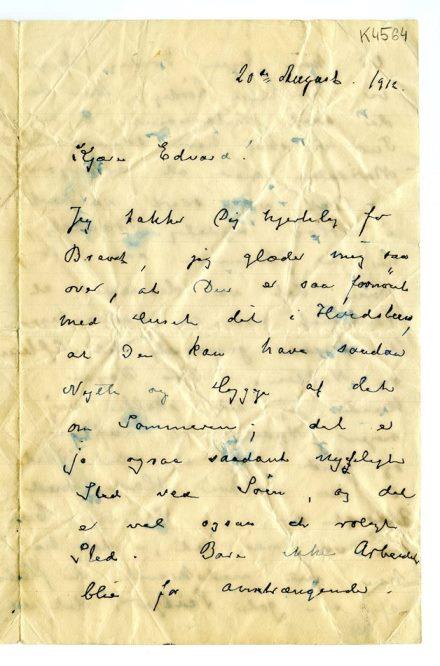 K4564
20de August. 1912.
Kjære Edvard!
Jeg takker Dig hjertelig for
Brevet, jeg glæder mig saa
over, at Du er saa fornøiet
med Huset dit i Hvidsten,
at Du kan have saadan
Nytte og Hygge af det
om Sommeren; det er
jo ogsaa saadant hyggeligt
Sted ved Søen, og det
er vel ogsaa et roligt
Sted. Bare ikke Arbeidet
blir for anstrængende.